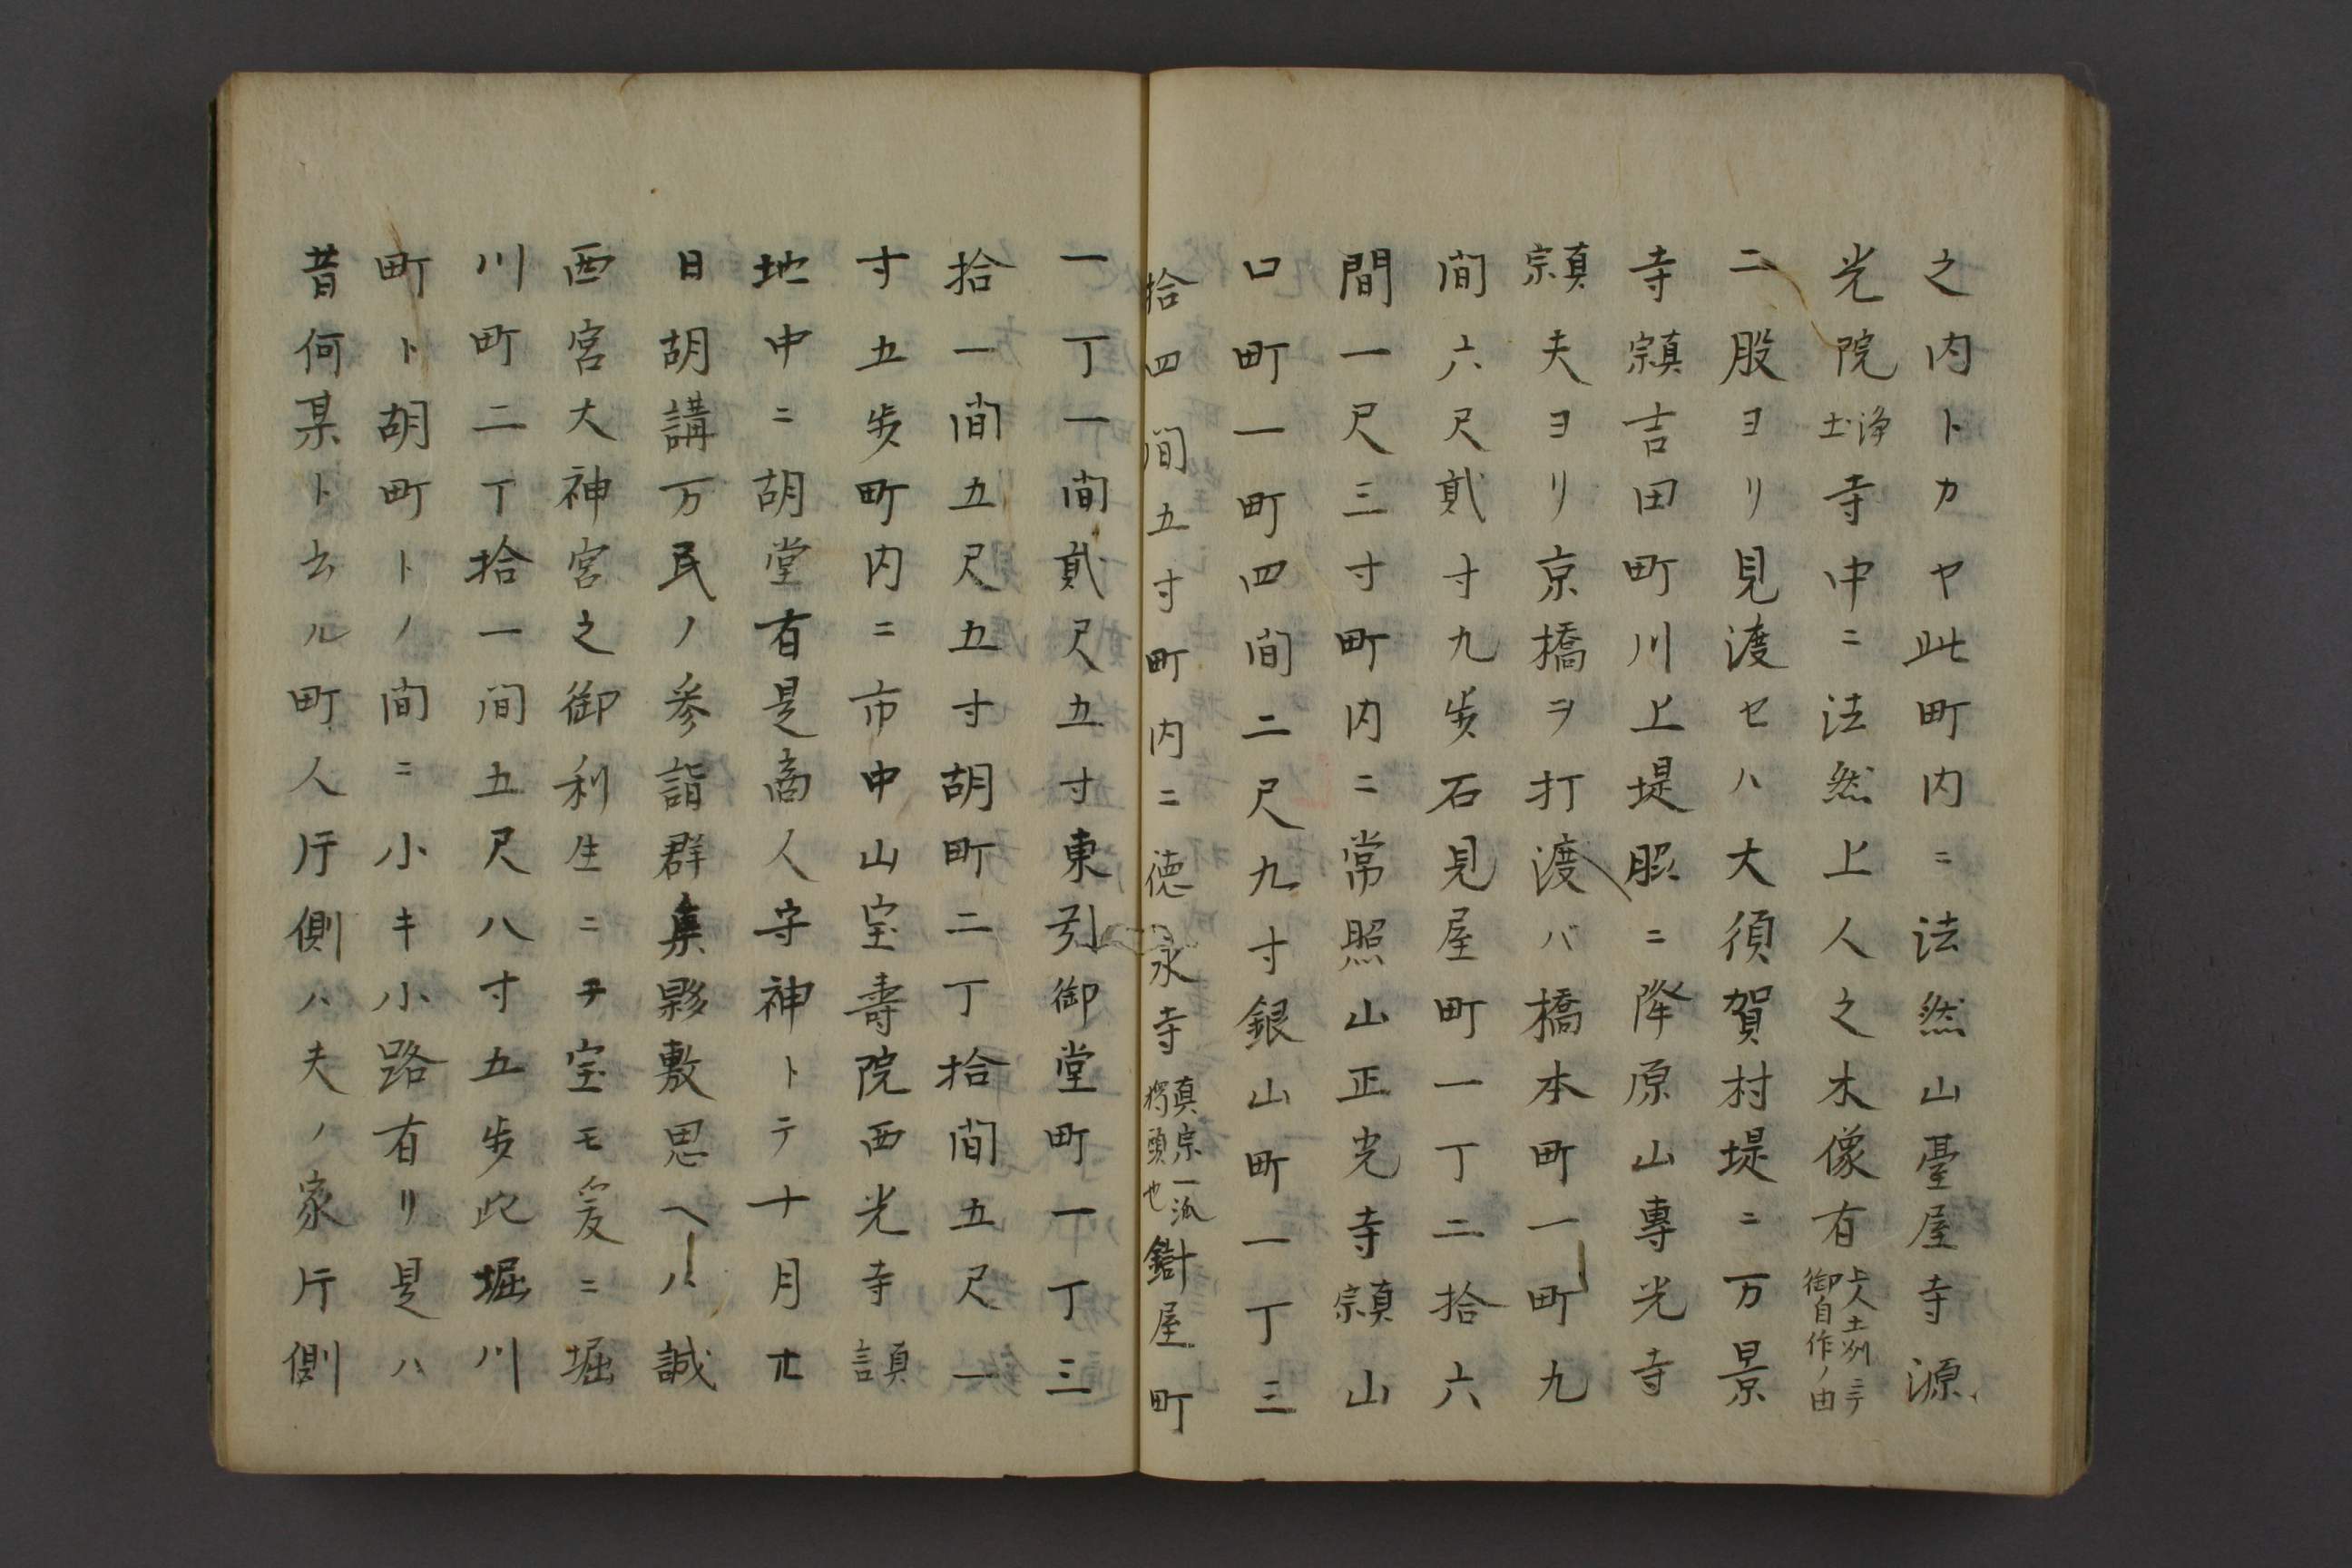 之内トカヤ此町内ニ法然山臺屋寺源
光院浄土寺中ニ法然上人之木像有上人土州ニテ御自作ノ由
二股ヨリ見渡セハ大須賀村堤ニ万景
寺宗真吉田町川上堤ニ降原山專光寺
宗真夫ヨリ京橋ヲ打渡バ橋本町一町九
間六尺貳寸九歩石見屋町一丁二拾六
間一尺三寸町内ニ常照山正光寺宗真山
口町一町四間二尺九寸銀山町一丁三
拾四間五寸町内ニ徳永寺真宗一派觸頭也鐵屋町
一丁一間貳尺五寸東引御堂町一丁三
拾一間五尺五寸胡町二丁拾間五尺一
寸五歩町内ニ市中山宝壽院西光寺言真
地中ニ胡堂有是商人守神トテ十月廿
日胡講万民ノ参詣群集夥敷思ヘハ誠
西宮大神宮之御利生ニヲ宝モ爰ニ堀
川町二丁拾一間五尺八寸五歩此堀川
町ト胡町トノ間ニ小キ小路有リ是ハ
昔何某ト云ル町人片側ハ夫ノ家片側